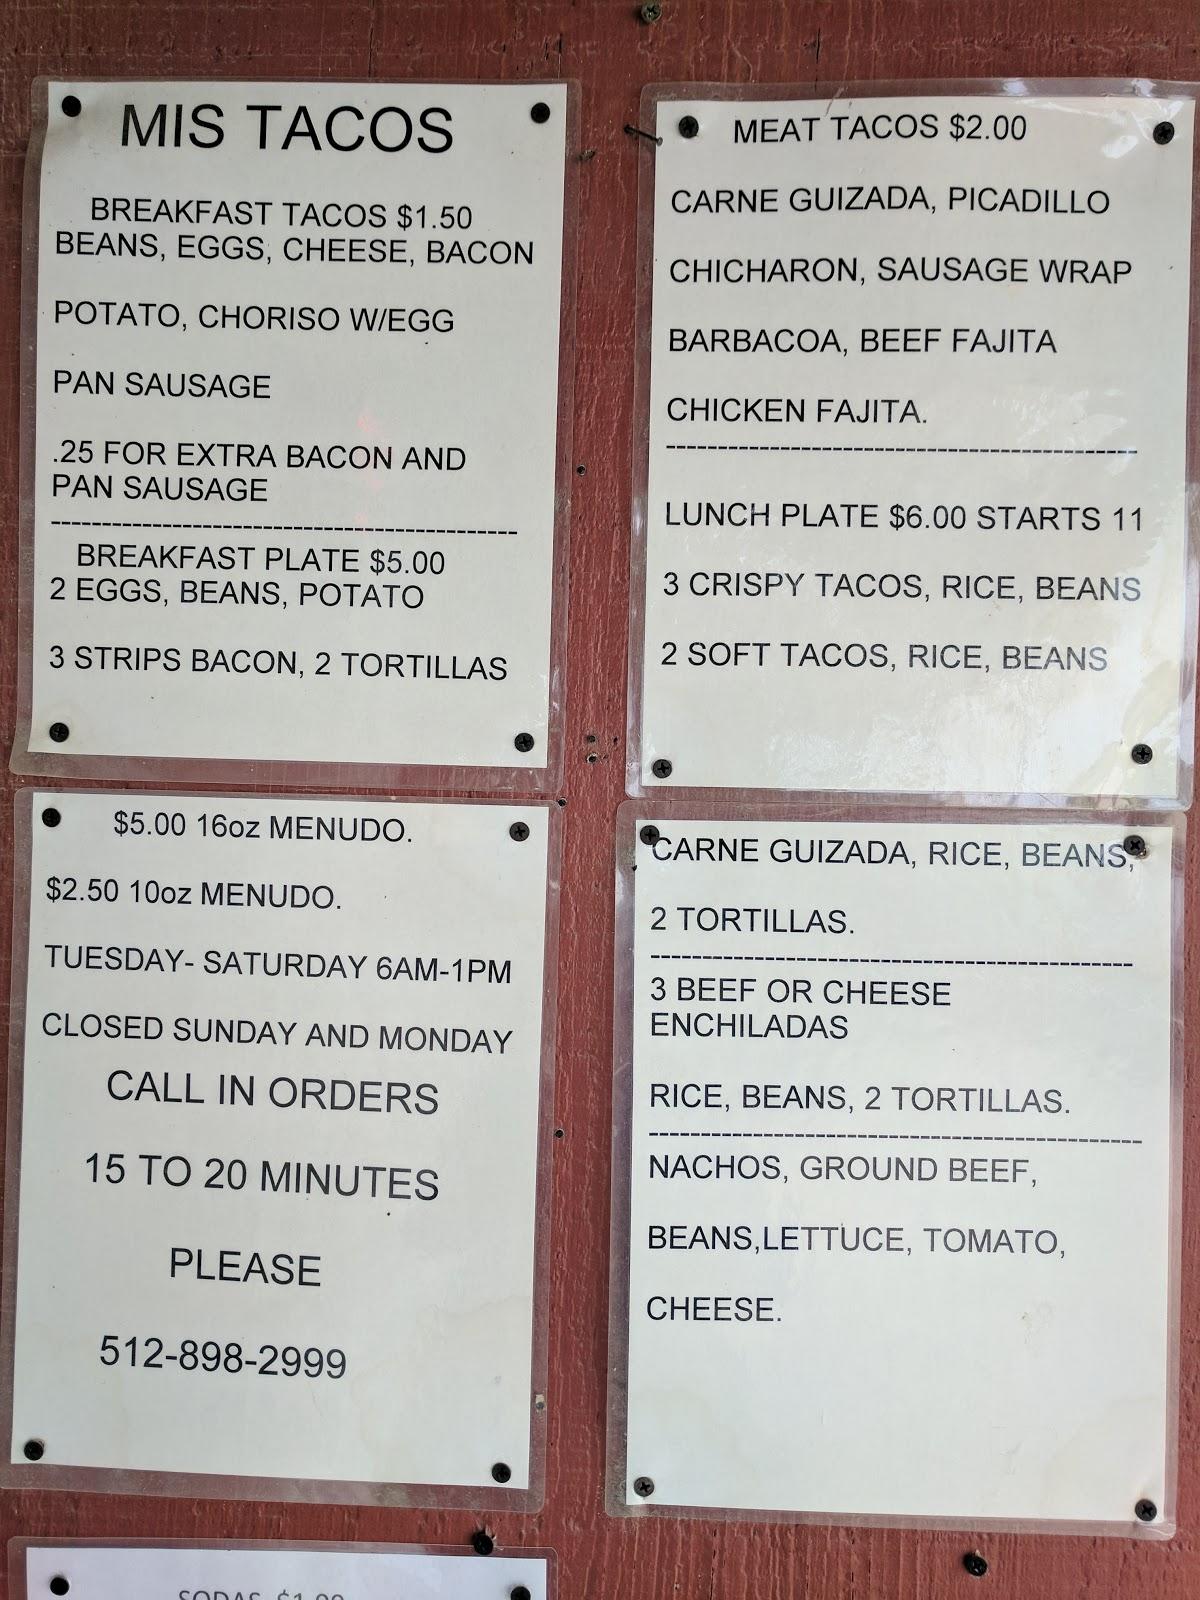 MIS TACOS
BREAKFAST TACOS $1.50
BEANS, EGGS, CHEESE, BACON
POTATO, CHORISO W/EGG
PAN SAUSAGE
.25 FOR EXTRA BACON AND
PAN SAUSAGE
BREAKFAST PLATE $5.00
2 EGGS, BEANS, POTATO
3 STRIPS BACON, 2 TORTILLAS
MEAT TACOS $2.00
CARNE GUIZADA, PICADILLO
CHICHARON, SAUSAGE WRAP
BARBACOA, BEEF FAJITA
CHICKEN FAJITA.
LUNCH PLATE $6.00 STARTS 11
3 CRISPY TACOS, RICE, BEANS
2 SOFT TACOS, RICE, BEANS
$5.00 16oz MENUDO.
$2.50 10oz MENUDO.
TUESDAY- SATURDAY 6AM-1PM
CLOSED SUNDAY AND MONDAY
CALL IN ORDERS
15 TO 20 MINUTES
PLEASE
512-898-2999
CARNE GUIZADA, RICE, BEANS,
2 TORTILLAS.
3 BEEF OR CHEESE
ENCHILADAS
RICE, BEANS, 2 TORTILLAS.
NACHOS, GROUND BEEF,
BEANS,LETTUCE, TOMATO,
CHEESE.
SODAS